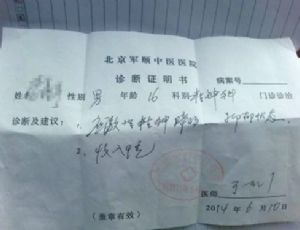 北京军颐中医医院
诊断证明书
病案号
姓名 性别 男 年龄 16 科别 精神科 门诊诊治
诊断及建议: 1. 应激性精神障碍 抑郁状态
2. 收入
医师
(盖章有效) 2014年6月10日